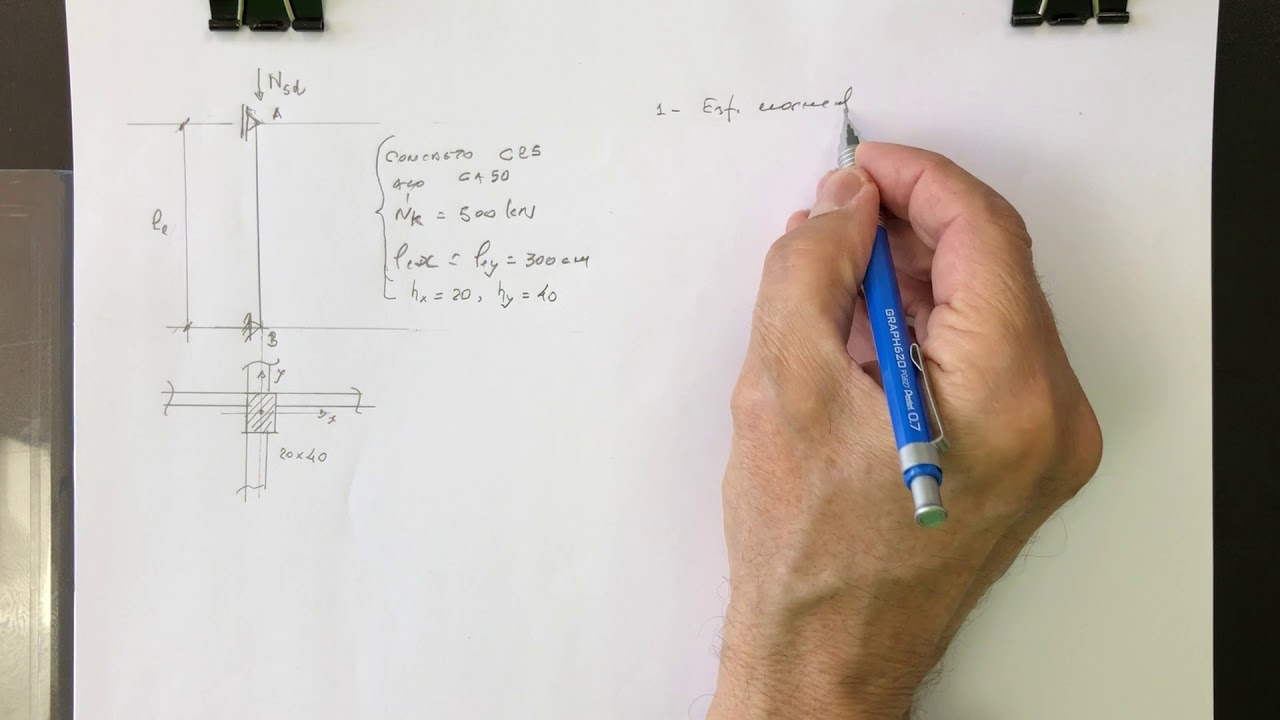 Nsd
A
le
CONCRETO C25
AÇO CA50
Nk = 500 kN
lex = ley = 300 cm
hx = 20, hy = 40
B
y
x
20×40
1- Esf. normal
GRAPH620 PG607 Pentel 0.7